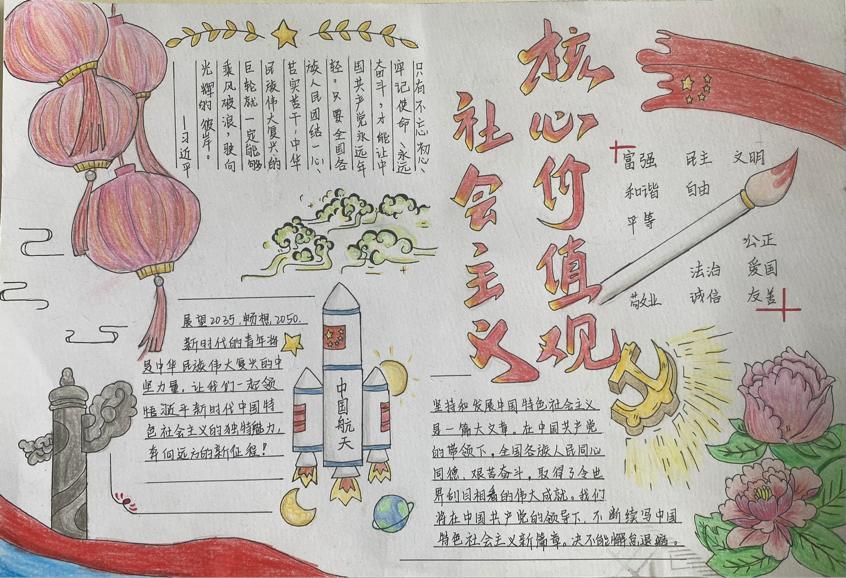 只有不忘初心、
牢记使命、永远
奋斗,才能让中
国共产党永远年
轻。只要全国各
族人民团结一心、
苦实苦干,中华
民族伟大复兴的
巨轮就一定能够
乘风破浪,驶向
光辉的彼岸。
——习近平
核心价值观
社会主义
富强 民主 文明
和谐 自由
平等
公正
法治 爱国
敬业 诚信 友善
展望2035,畅想2050.
新时代的青年将
是中华民族伟大复兴的中
坚力量,让我们一起领
悟近平新时代中国特
色社会主义的独特魅力,
奔向远方的新征程!
中国航天
坚持和发展中国特色社会主义
是一篇大文章。在中国共产党
的带领下,全国各族人民同心
同德、艰苦奋斗,取得了令世
界刮目相看的伟大成就。我们
将在中国共产党的领导下,不断续写中国
特色社会主义新篇章。决不能懈怠退缩。